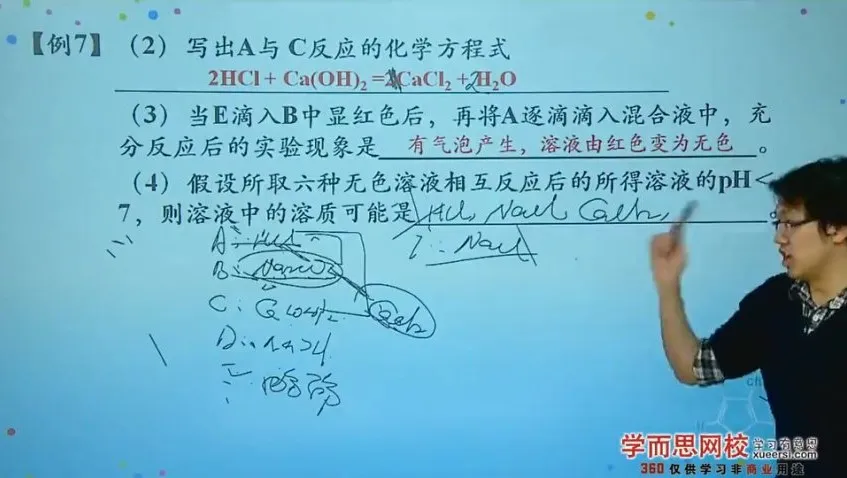 【例7】（2）写出A与 C反应的化学方程式
2HCl + Ca(OH)₂ = CaCl₂ + 2H₂O
（3）当E滴入B中显红色后，再将A逐滴滴入混合液中，充
分反应后的实验现象是 有气泡产生，溶液由红色变为无色 。
（4）假设所取六种无色溶液相互反应后的所得溶液的pH＜
7，则溶液中的溶质可能是 HCl, NaCl, CaCl₂ 。
A: HCl
I: NaCl
B:
C:
CaCl₂
D:
学而思网校 学习有意思
xueersi.com
360 仅供学习非商业用途